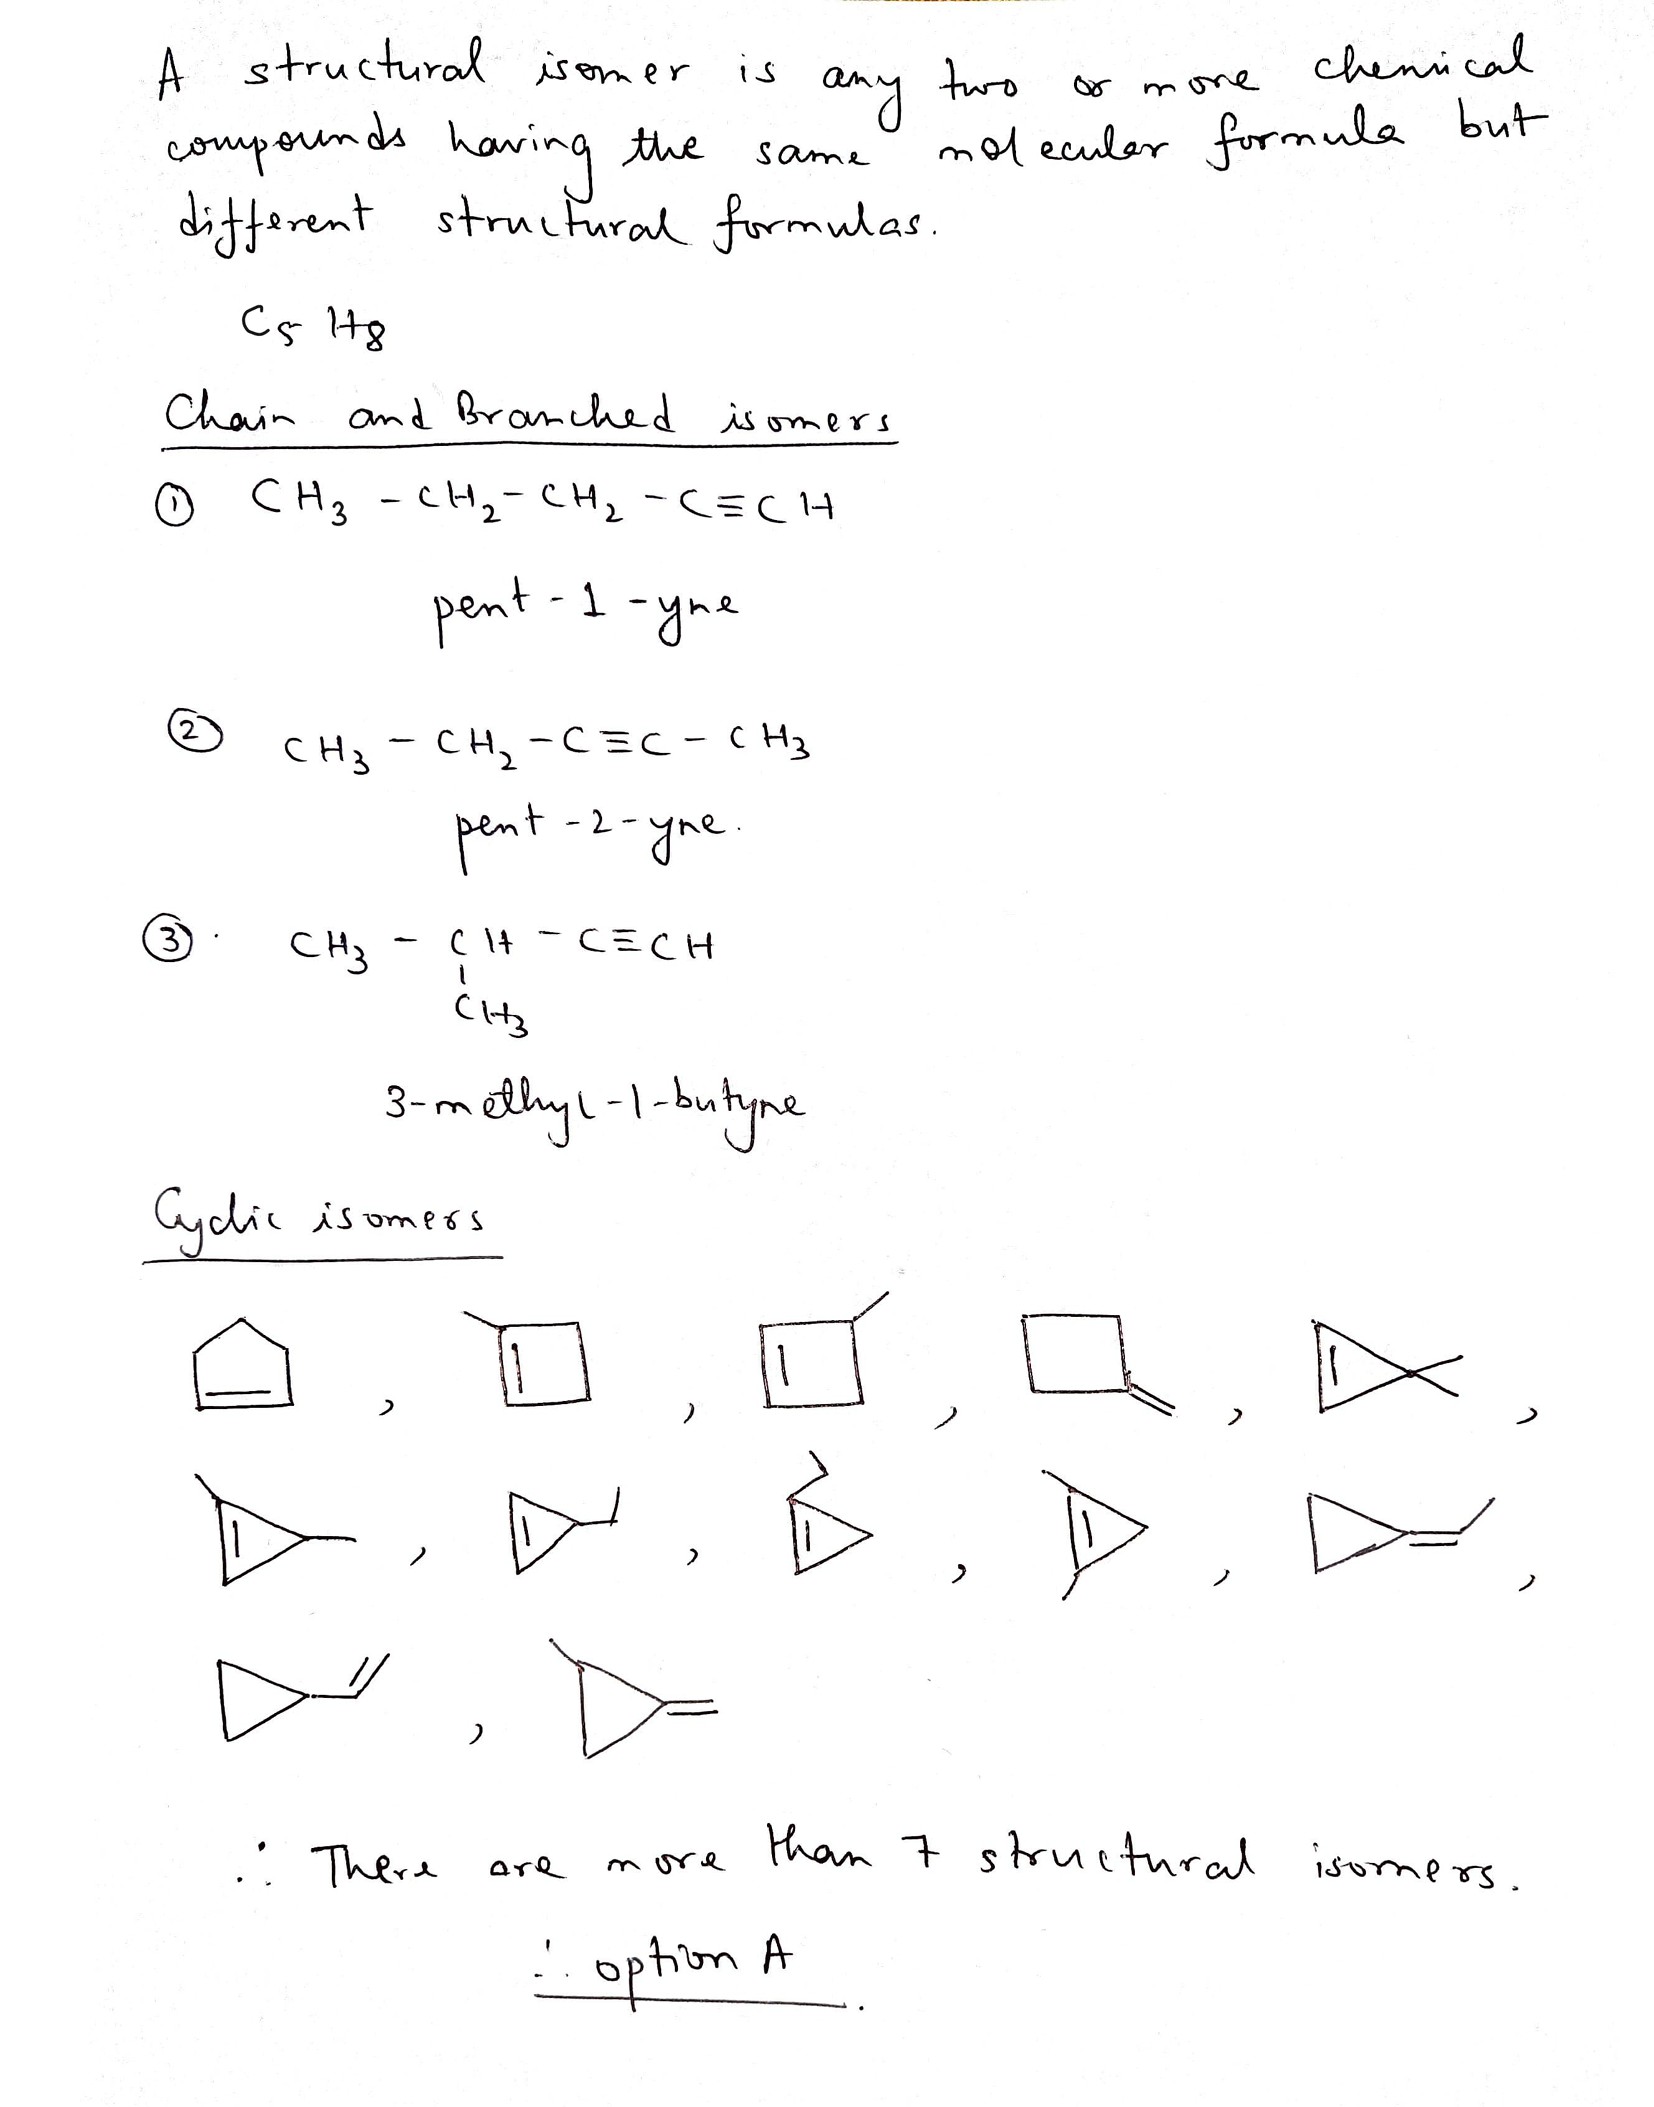 A structural isomer is any two or more chemical
compounds having the same molecular formula but
different structural formulas.
C5 H8
Chain and Branched isomers
① CH3 - CH2 - CH2 - C≡CH
pent - 1 - yne
② CH3 - CH2 - C≡C - CH3
pent - 2 - yne.
③. CH3 - CH - C≡CH
CH3
3-methyl-1-butyne
Cyclic isomers
, , , , ,
, , , , ,
,
∴ There are more than 7 structural isomers.
∴ option A.